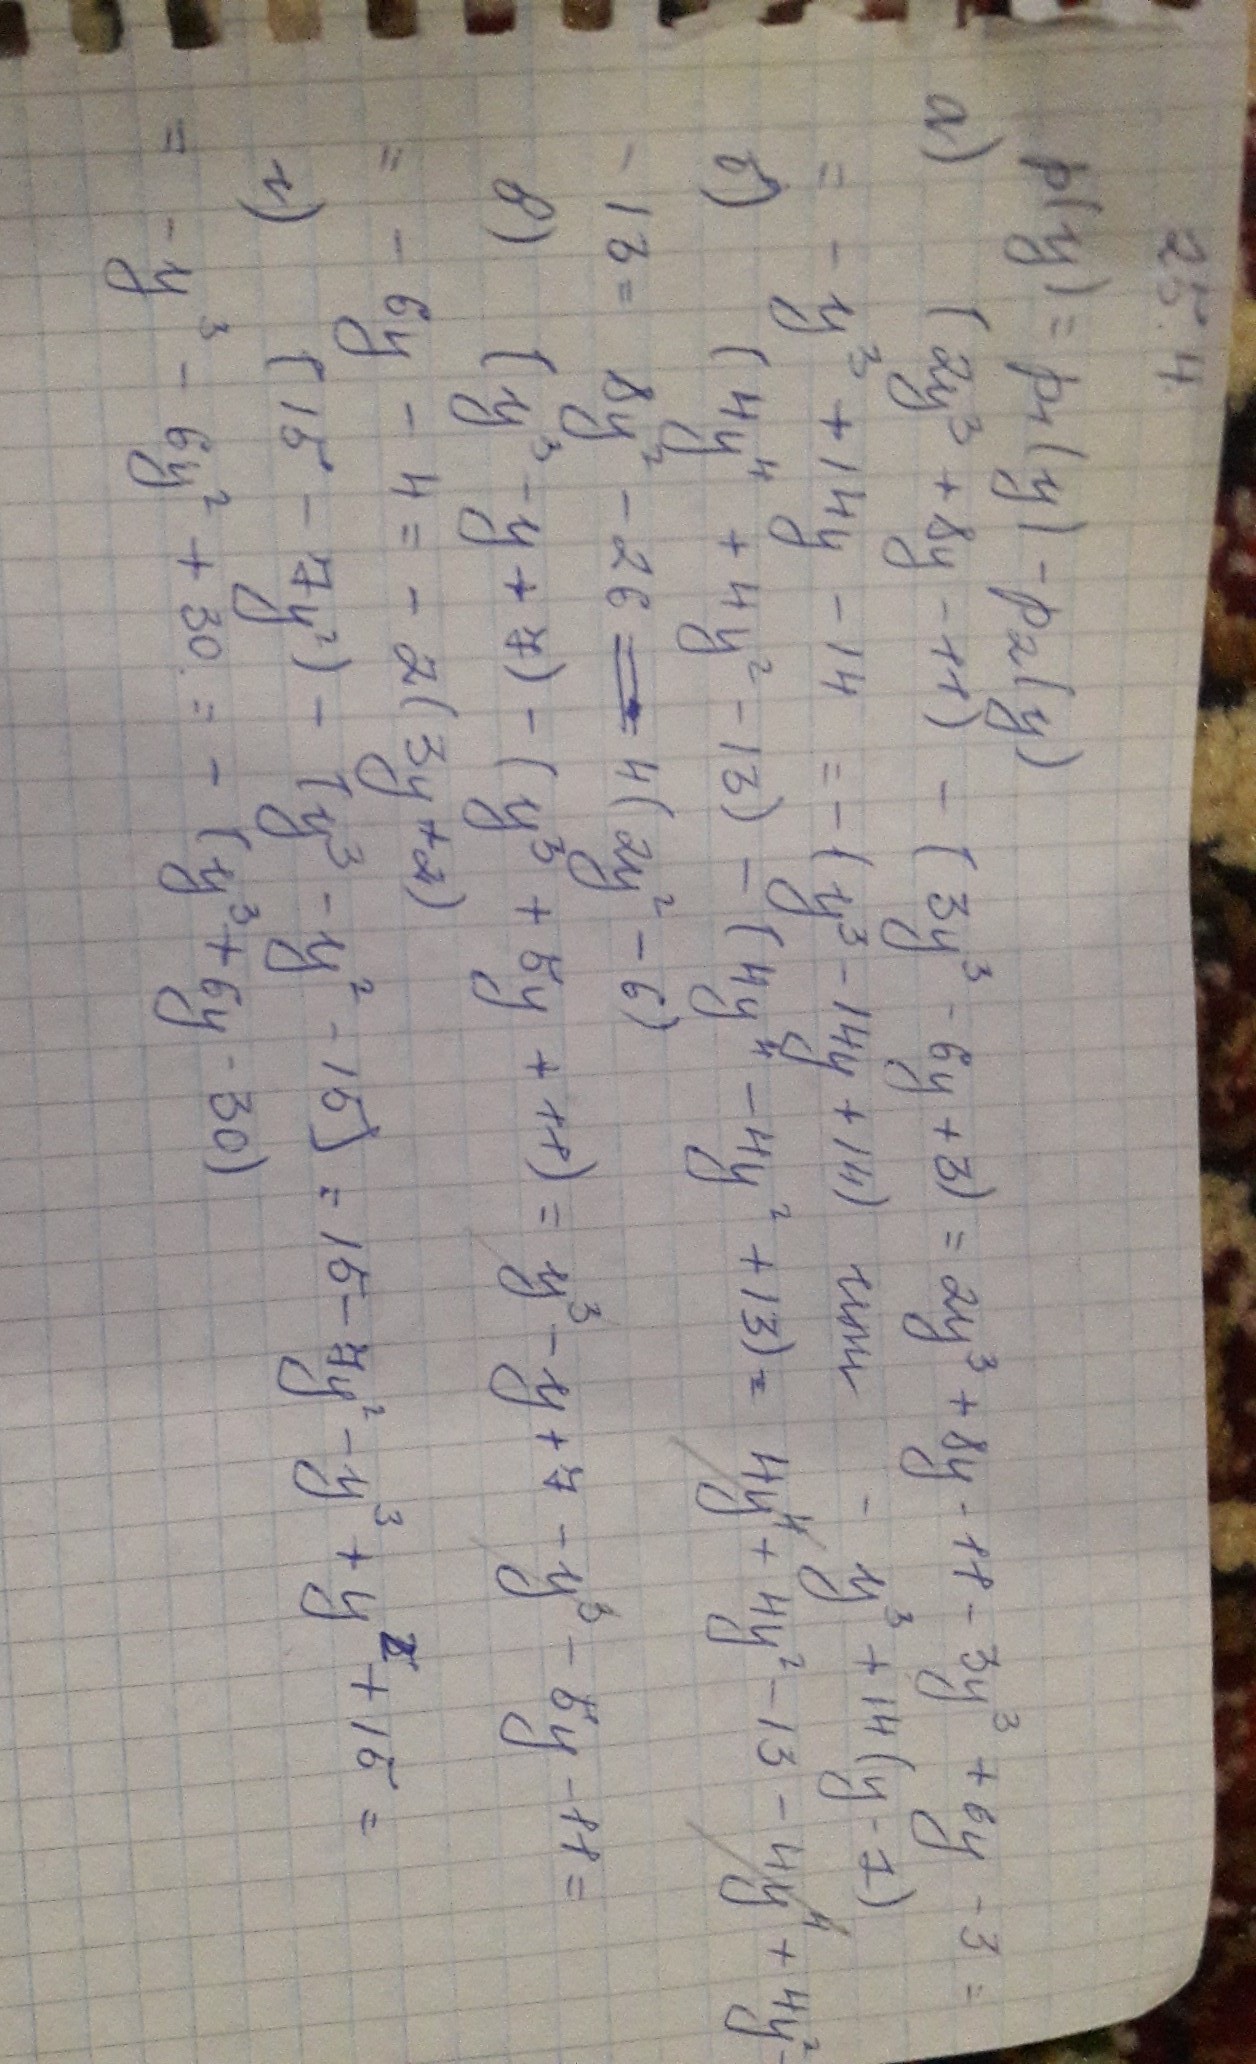 25.4.
p(y) = p1(y) - p2(y)
а) (2y³ + 8y - 11) - (3y³ - 6y + 3) = 2y³ + 8y - 11 - 3y³ + 6y - 3 =
= - y³ + 14y - 14 = - (y³ - 14y + 14) или - y³ + 14(y - 1)
б) (4y⁴ + 4y² - 13) - (4y⁴ - 4y² + 13) = 4y⁴ + 4y² - 13 - 4y⁴ + 4y² -
- 13 = 8y² - 26 = 4(2y² - 6)
в) (y³ - y + 7) - (y³ + 5y + 11) = y³ - y + 7 - y³ - 5y - 11 =
= - 6y - 4 = - 2(3y + 2)
г) (15 - 7y²) - (y³ - y² - 15) = 15 - 7y² - y³ + y² + 15 =
= - y³ - 6y² + 30 = - (y³ + 6y - 30)